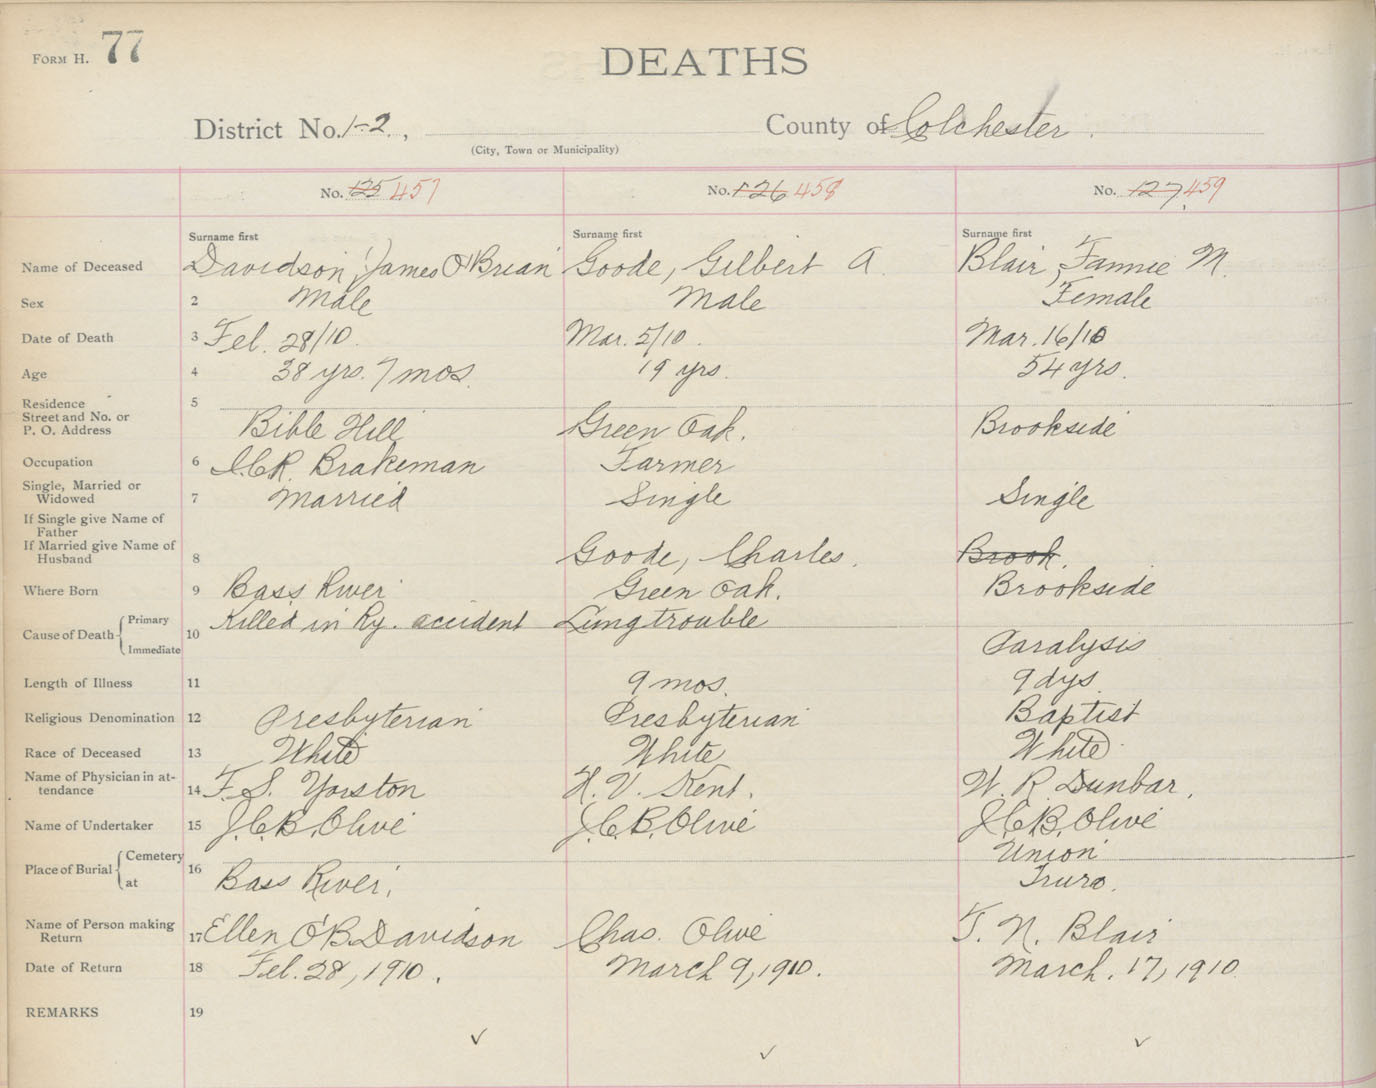 FORM H. 77
DEATHS
District No. 1-2, County of Colchester.
(City, Town or Municipality)
No. 125 457 No. 126 458 No. 127, 459
Surname first Surname first Surname first
Name of Deceased Davidson, James O'Brian Goode, Gilbert A. Blair, Fannie M.
Sex 2 Male Male Female
Date of Death 3 Feb. 28/10. Mar. 5/10. Mar. 16/10
Age 4 38 yrs. 7 mos. 19 yrs. 54 yrs.
Residence 5
Street and No. or
P. O. Address Bible Hill Green Oak. Brookside
Occupation 6 I.C.R. Brakeman Farmer
Single, Married or
Widowed 7 Married Single Single
If Single give Name of
Father
If Married give Name of
Husband 8 Goode, Charles. Brook.
Where Born 9 Bass River Green Oak. Brookside
Cause of Death Primary 10 Killed in Ry. accident Lung trouble
Immediate Paralysis
Length of Illness 11 9 mos. 9 dys
Religious Denomination 12 Presbyterian Presbyterian Baptist
Race of Deceased 13 White White White
Name of Physician in at-
tendance 14 F. S. Yorston H. V. Kent. W. R. Dunbar.
Name of Undertaker 15 J.C.B. Olive J.C.B. Olive J.C.B. Olive
Place of Burial Cemetery 16 Union
at Bass River. Truro.
Name of Person making
Return 17 Ellen O'B. Davidson Chas. Olive T. N. Blair
Date of Return 18 Feb. 28, 1910. March 9, 1910. March. 17, 1910.
REMARKS 19